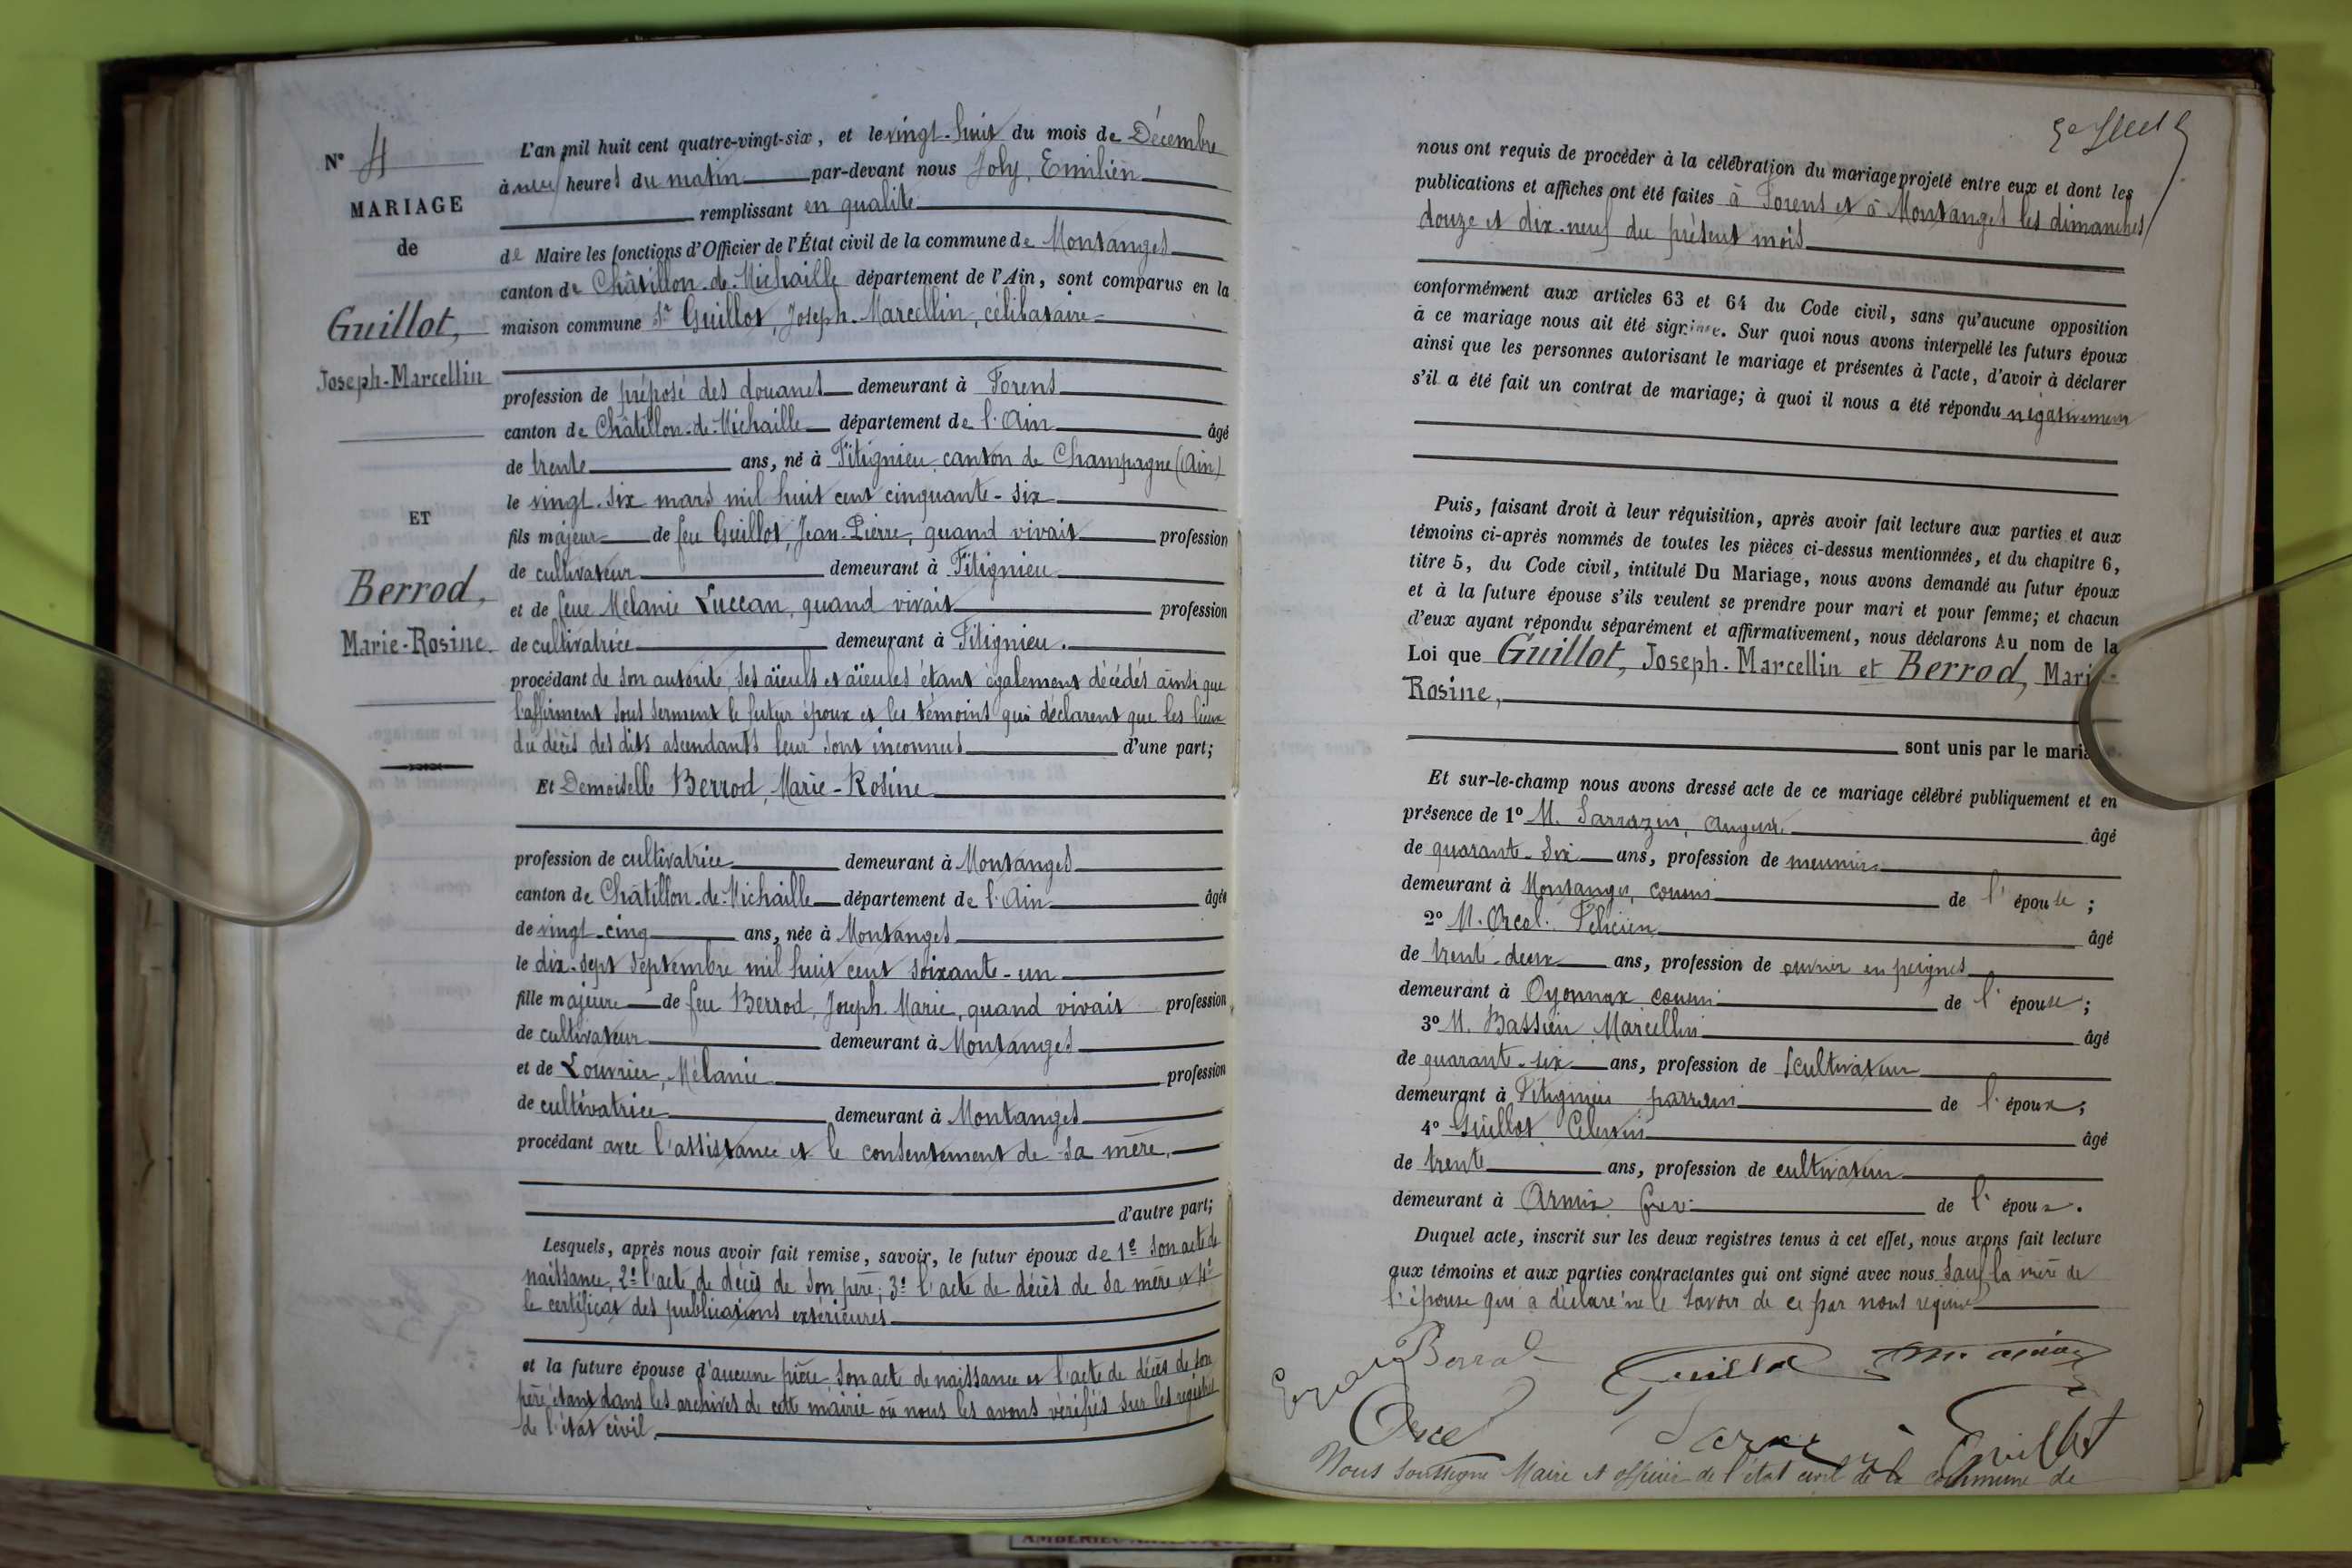 N° 4
MARIAGE
de
Guillot,
Joseph-Marcellin
ET
Berrod,
Marie-Rosine
L'an mil huit cent quatre-vingt-six, et le vingt-huit du mois de Décembre
à neuf heures du matin par-devant nous Joly, Emilien
remplissant en qualité
de Maire les fonctions d'Officier de l'État civil de la commune de Montanges
canton de Châtillon-de-Michaille département de l'Ain, sont comparus en la
maison commune Sr Guillot, Joseph-Marcellin, célibataire
profession de préposé des douanes demeurant à Forens
canton de Châtillon-de-Michaille département de l'Ain âgé
de trente ans, né à Fitignieu, canton de Champagne (Ain)
le vingt-six mars mil huit cent cinquante-six
fils majeur de feu Guillot, Jean-Pierre, quand vivait profession
de cultivateur demeurant à Fitignieu
et de feue Mélanie Luccan, quand vivait profession
de cultivatrice demeurant à Fitignieu.
procédant de son autorité, ses aïeuls et aïeules étant également décédés ainsi que
l'affirment sous serment le futur époux et les témoins qui déclarent que les lieux
du décès des dits ascendants leur sont inconnus d'une part;
Et Demoiselle Berrod, Marie-Rosine
profession de cultivatrice demeurant à Montanges
canton de Châtillon-de-Michaille département de l'Ain âgée
de vingt-cinq ans, née à Montanges
le dix-sept Septembre mil huit cent soixante-un
fille majeure de feu Berrod, Joseph-Marie, quand vivait profession
de cultivateur demeurant à Montanges
et de Louvrier, Mélanie profession
de cultivatrice demeurant à Montanges
procédant avec l'assistance et le consentement de sa mère,
d'autre part;
Lesquels, après nous avoir fait remise, savoir, le futur époux de 1° son acte de
naissance, 2° l'acte de décès de son père; 3° l'acte de décès de sa mère et 4°
le certificat des publications extérieures
et la future épouse d'aucune pièce, son acte de naissance et l'acte de décès de son
père étant dans les archives de cette mairie où nous les avons vérifiés sur les registres
de l'état civil.
nous ont requis de procéder à la célébration du mariage projeté entre eux et dont les
publications et affiches ont été faites à Forens et à Montanges les dimanches
douze et dix-neuf du présent mois
conformément aux articles 63 et 64 du Code civil, sans qu'aucune opposition
à ce mariage nous ait été signifiée. Sur quoi nous avons interpellé les futurs époux
ainsi que les personnes autorisant le mariage et présentes à l'acte, d'avoir à déclarer
s'il a été fait un contrat de mariage; à quoi il nous a été répondu négativement
Puis, faisant droit à leur réquisition, après avoir fait lecture aux parties et aux
témoins ci-après nommés de toutes les pièces ci-dessus mentionnées, et du chapitre 6,
titre 5, du Code civil, intitulé Du Mariage, nous avons demandé au futur époux
et à la future épouse s'ils veulent se prendre pour mari et pour femme; et chacun
d'eux ayant répondu séparément et affirmativement, nous déclarons Au nom de la
Loi que Guillot, Joseph-Marcellin et Berrod, Marie-
Rosine,
sont unis par le mariage.
Et sur-le-champ nous avons dressé acte de ce mariage célébré publiquement et en
présence de 1° M. Sarrazin, Auguste âgé
de quarante-six ans, profession de meunier
demeurant à Montanges, cousin de l'épouse;
2° M. Orcel Félicien âgé
de trente-deux ans, profession de ouvrier en peignes
demeurant à Oyonnax cousin de l'épouse;
3° M. Bassieu Marcellin âgé
de quarante-six ans, profession de cultivateur
demeurant à Fitignieu parrain de l'époux;
4° Guillot Célestin âgé
de trente ans, profession de cultivateur
demeurant à de l'époux.
Duquel acte, inscrit sur les deux registres tenus à cet effet, nous avons fait lecture
aux témoins et aux parties contractantes qui ont signé avec nous sauf la mère de
l'épouse qui a déclaré ne le savoir de ce par nous requise
Berrod Guillot
Orcel Guillot
Nous soussigné Maire et officier de l'état civil de la commune de